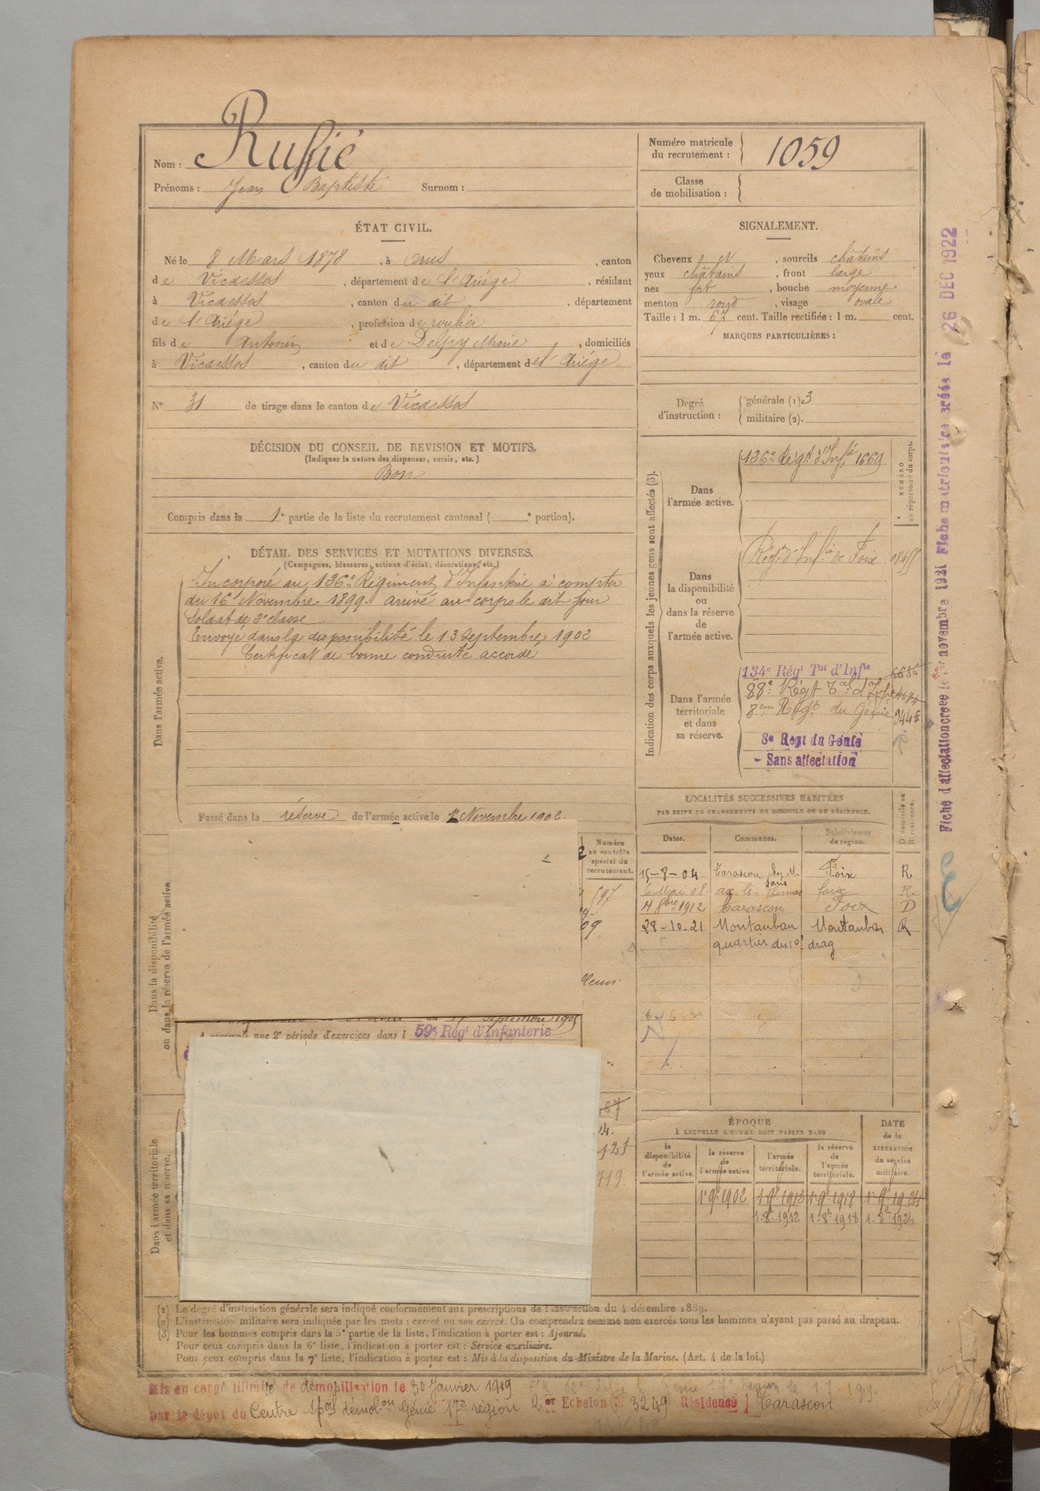 Nom : Ruffié
Prénoms : Jean Baptiste Surnom :
Numéro matricule du recrutement : 1059
Classe de mobilisation :
ÉTAT CIVIL.
Né le 8 Mars 1878, à Orus, canton
de Vicdessos, département de l'Ariège, résidant
à Vicdessos, canton du dit, département
de l'Ariège, profession de roulier
fils de Antonin et de Delpy Marie, domiciliés
à Vicdessos, canton du dit, département de l'Ariège
N° 31 de tirage dans le canton de Vicdessos
SIGNALEMENT.
Cheveux et, sourcils châtains
yeux châtains, front large
nez fort, bouche moyenne
menton rond, visage ovale
Taille : 1 m. 67 cent. Taille rectifiée : 1 m. cent.
MARQUES PARTICULIÈRES :
Degré d'instruction : générale (1). 3
militaire (2).
DÉCISION DU CONSEIL DE REVISION ET MOTIFS.
(Indiquer la nature des dispenses, sursis, etc.)
Bon
Compris dans la 1e partie de la liste du recrutement cantonal ( e portion).
DÉTAIL DES SERVICES ET MUTATIONS DIVERSES.
(Campagnes, blessures, actions d'éclat, décorations, etc.)
Dans l'armée active.
Incorporé au 136e Régiment d'Infanterie à compter
du 16 Novembre 1899. arrivé au corps le dit jour
Soldat de 2e classe
Envoyé dans la disponibilité le 13 Septembre 1902
Certificat de bonne conduite accordé
Passé dans la réserve de l'armée active le 1er Novembre 1902
Indication des corps auxquels les jeunes gens sont affectés (3).
NUMÉRO au répertoire du corps.
Dans l'armée active.
136e Régt d'Infie 1669
Dans la disponibilité ou dans la réserve de l'armée active.
Régt d'Infie de Foix
Dans l'armée territoriale et dans sa réserve.
134e Régt Tal d'Infie
88e Régt Tal d'Infie
8me Régt du Génie
8e Regt du Génie
- Sans affectation
LOCALITÉS SUCCESSIVES HABITÉES
PAR SUITE DE CHANGEMENTS DE DOMICILE OU DE RÉSIDENCE.
Dates. Communes. Subdivisions de région. D domicile ou R résidence.
15-8-04 Tarascon Foix R
6 Mai 08 ax les Thermes foix R
11 8bre 1912 Tarascon Foix D
28-10-21 Montauban Montauban R
quartier du 10e drag
Numéro au contrôle spécial du recrutement.
Dans la disponibilité ou dans la réserve de l'armée active.
septembre 1905
A accompli une 2e période d'exercices dans l 59e Régt d'Infanterie
Dans l'armée territoriale et dans sa réserve.
ÉPOQUE
À LAQUELLE L'HOMME DOIT PASSER DANS
la disponibilité de l'armée active.
la réserve de l'armée active.
l'armée territoriale.
la réserve de l'armée territoriale.
DATE de la LIBÉRATION du service militaire.
1er 9bre 1902 1er 9bre 1912 1er 9bre 1918 1er 9bre 1924
1-8bre 1912 1-8bre 1918 1-8bre 1924
(1) Le degré d'instruction générale sera indiqué conformément aux prescriptions de l'instruction du 4 décembre 1889.
(2) L'instruction militaire sera indiquée par les mots : exercé ou non exercé. On comprendra comme non exercés tous les hommes n'ayant pas passé au drapeau.
(3) Pour les hommes compris dans la 5e partie de la liste, l'indication à porter est : Ajourné.
Pour ceux compris dans la 6e liste, l'indication à porter est : Service auxiliaire.
Pour ceux compris dans la 7e liste, l'indication à porter est : Mis à la disposition du Ministre de la Marine. (Art. 4 de la loi.)
Mis en congé illimité de démobilisation le 30 Janvier 1919
par le dépôt du Centre Spal démobon Génie 17e région 2e Echelon 3249 Résidence Tarascon
Fiche d'affectation créée le 1er novembre 1921 Fiche matriculaire créée le 26 DEC 1922